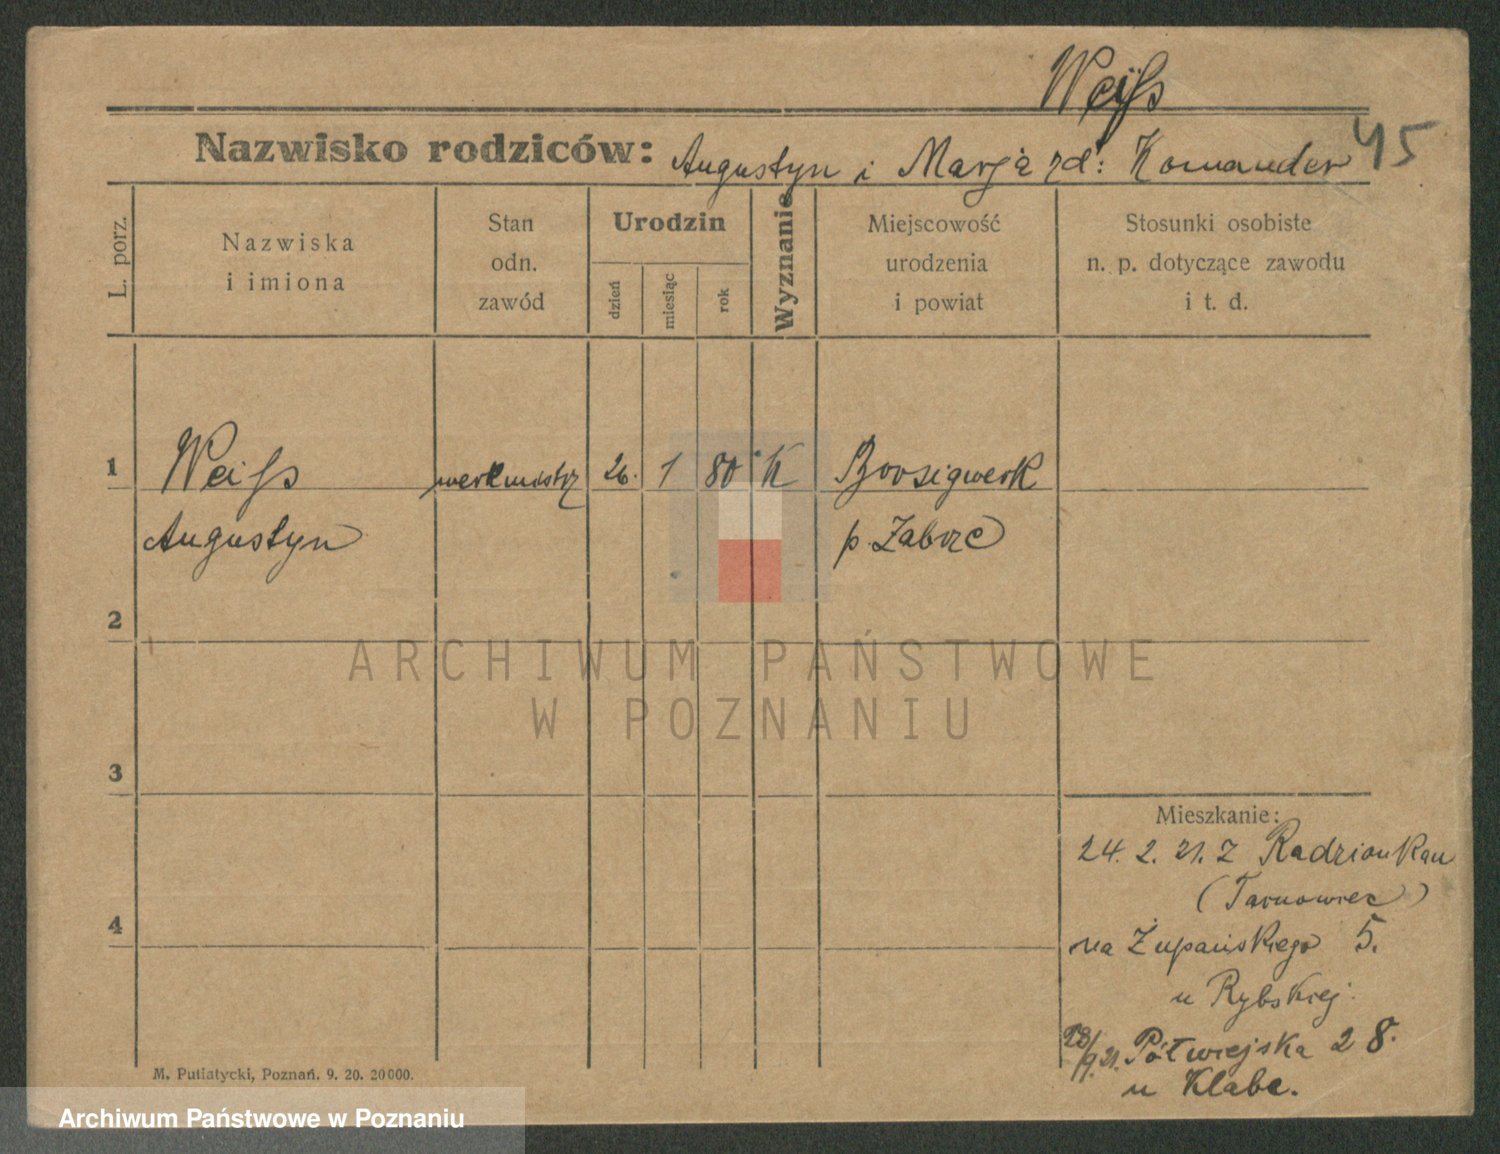 Weiß
45
Nazwisko rodziców: Augustyn i Marja zd: Komander
L. porz.
Nazwiska
i imiona
Stan
odn.
zawód
Urodzin
dzień
miesiąc
rok
Wyznanie
Miejscowość
urodzenia
i powiat
Stosunki osobiste
n. p. dotyczące zawodu
i t. d.
1 Weiß werkmistrz 26. 1 80 K Borsigwerk
Augustyn p. Zabrze
2
3
4
Mieszkanie:
24. 2. 21. z Radzionkau
(Tarnowiec)
na Żupańskiego 5.
u Rybskiej.
28/9.21. Półwiejska 28.
u Klabe.
M. Putiatycki, Poznań. 9. 20. 20000.
ARCHIWUM PAŃSTWOWE
W POZNANIU
Archiwum Państwowe w Poznaniu